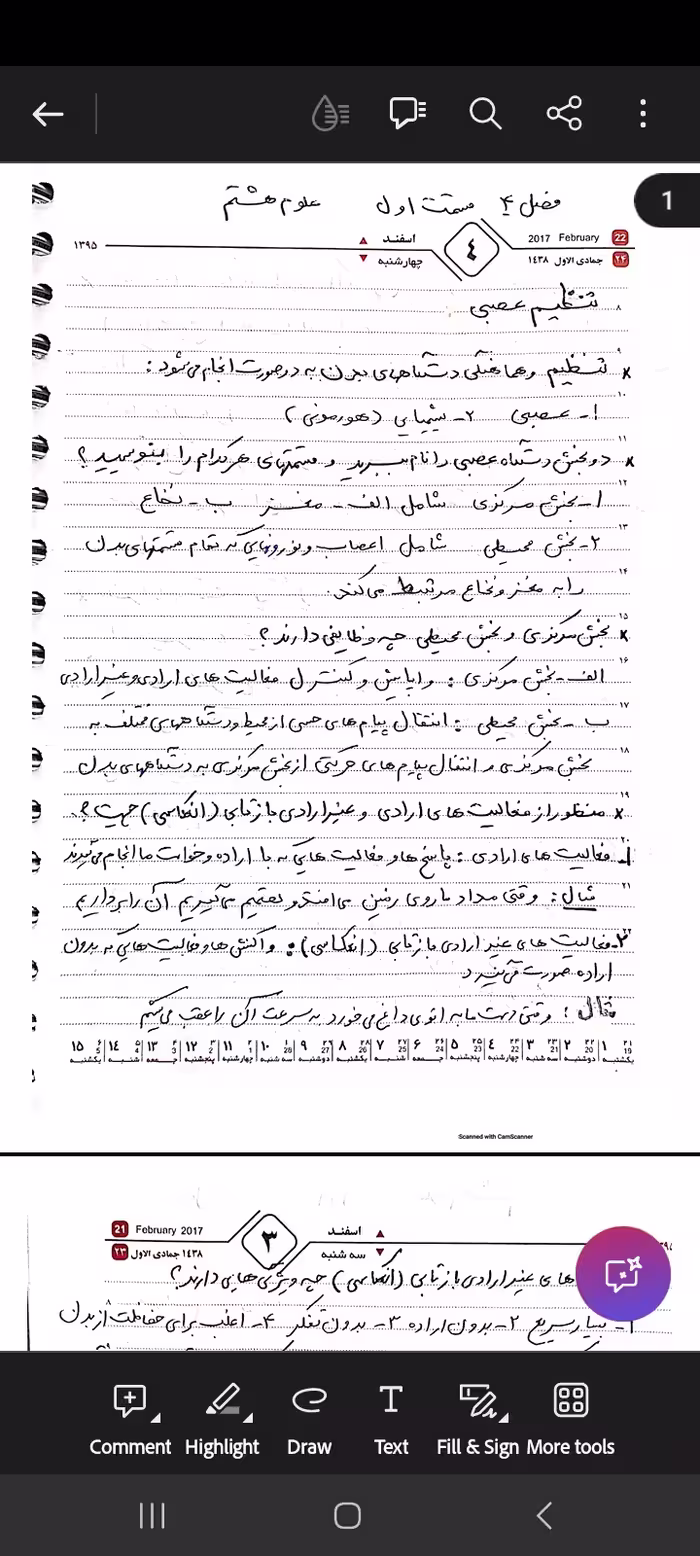 1
علوم هشتم قسمت اول فصل ۴
۱۳۹۵ اسفند ۴ 2017 February 22
چهارشنبه ۱۴۳۸ جمادی الاول ۲۴
تنظیم عصبی
× تنظیم و هماهنگی دستگاههای بدن به دو صورت انجام می‌شود :
۱- عصبی ۲- شیمیایی (هورمونی)
× دو بخش دستگاه عصبی را نام ببرید و قسمتهای هر کدام را بنویسید ؟
۱- بخش مرکزی شامل الف- مغز ب- نخاع
۲- بخش محیطی شامل اعصاب و نورونهایی که تمام قسمتهای بدن
را به مغز و نخاع مرتبط می‌کند.
× بخش مرکزی و بخش محیطی چه وظایفی دارند ؟
الف- بخش مرکزی : و پایش و کنترل فعالیت های ارادی و غیرارادی
ب- بخش محیطی : انتقال پیام های حسی از محیط و دستگاههای مختلف به
بخش مرکزی و انتقال پیام های حرکتی از بخش مرکزی به دستگاههای بدن
× منظور از فعالیت های ارادی و غیرارادی بازتابی (انعکاسی) چیست ؟
۱- فعالیت های ارادی : پاسخ ها و فعالیت هایی که با اراده و خواست ما انجام می‌گیرند
مثال : وقتی مداد ما روی زمین می‌افتد و تصمیم می‌گیریم آن را برداریم
۲- فعالیت های غیر ارادی بازتابی (انعکاسی) : واکنش ها و فعالیت هایی که بدون
اراده صورت می‌گیرد
مثال : وقتی دست ما به اتوی داغ می‌خورد به سرعت آن را عقب می‌کشیم
۱ ۲ ۳ ۴ ۵ ۶ ۷ ۸ ۹ ۱۰ ۱۱ ۱۲ ۱۳ ۱۴ ۱۵
Scanned with CamScanner
21 February 2017 ۳ اسفند
۲۳ جمادی الاول ۱۴۳۸ سه شنبه
های غیرارادی بازتابی (انعکاسی) چه ویژگی هایی دارند ؟
۱- بسیار سریع ۲- بدون اراده ۳- بدون تفکر ۴- اغلب برای حفاظت از بدن
Comment Highlight Draw Text Fill & Sign More tools